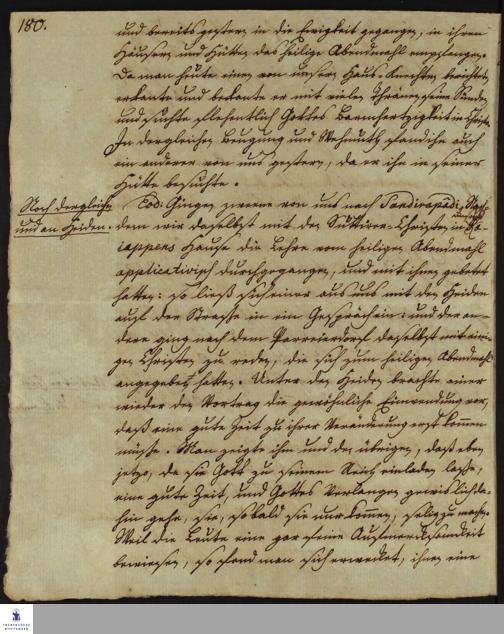 180.
und bereits gestern in die Ewigkeit gegangen, in ihren
Häusern und Hütten das heilige Abendmahl empfangen.
Da man heute einen von unsern Haus-Knechten berichtete,
erkante und bekante er mit vielen Thränen seine Sünden
und suchte flehentlich Gottes Barmhertzigkeit in Christo.
In dergleichen Beugung und Wehmuth fand ihn auch
ein anderer von uns gestern, da er ihn in seiner
Hütte besuchte.
Noch dergleichen
und an Heiden.
Eod. Gingen zweene von uns nach Sandirapadi. Nach-
dem wir daselbst mit den Suttirer-Christen in
iappens Hause die Lehre vom heiligen Abendmahl
applicativisch durchgegangen, und mit ihnen gebetet
hatten: so ließ sich einer aus uns mit den Heiden
auf der Strasse in ein Gespräch ein: und der an-
dere ging nach dem Parreierdorf daselbst mit eini-
gen Christen zu reden, die sich zum heiligen Abendmahl
angegeben hatten. Unter den Heiden brachte einer
wieder den Vortrag die gewöhnliche Einwendung vor,
daß eine gute Zeit zu ihrer Veränderung erst kommen
müsse. Man zeigte ihm und den übrigen, daß eben
jetzo, da sie Gott zu seinem Reich einladen lasse,
eine gute Zeit, und Gottes Verlangen gewislich da-
hin gehe, sie, sobald sie nur kommen, selig zu machen.
Weil die Leute eine gar feine Aufmercksamkeit
bewiesen, so fand man sich erwecket, ihnen eine
FRANCKESCHE
STIFTUNGEN